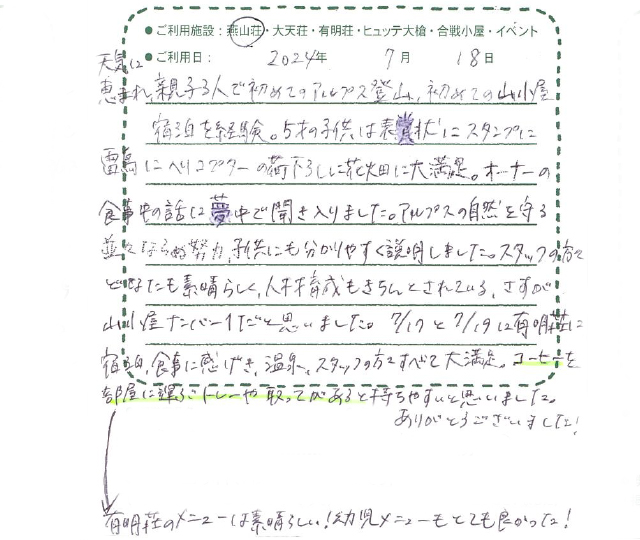 ● ご利用施設：燕山荘・大天荘・有明荘・ヒュッテ大槍・合戦小屋・イベント
● ご利用日： 2024年 7月 18日
天気に
恵まれ、親子3人で初めてのアルプス登山、初めての山小屋
宿泊を経験。5才の子供は表賞状にスタンプに
雷鳥にヘリコプターの荷下ろしに花畑に大満足。オーナーの
食事中の話に夢中で聞き入りました。アルプスの自然を守る
並々ならぬ努力、子供にも分かりやすく説明しました。スタッフの方々
どなたも素晴らしく、人材育成もきちんとされている、さすが
山小屋ナンバー1だと思いました。7/17と7/19は有明荘に
宿泊、食事に感げき、温泉、スタッフの方々すべて大満足。コーヒーを
部屋に運ぶトレーや取ってがあると持ちやすいと思いました。
ありがとうございました!
有明荘のメニューは素晴らしい!幼児メニューもとても良かった!